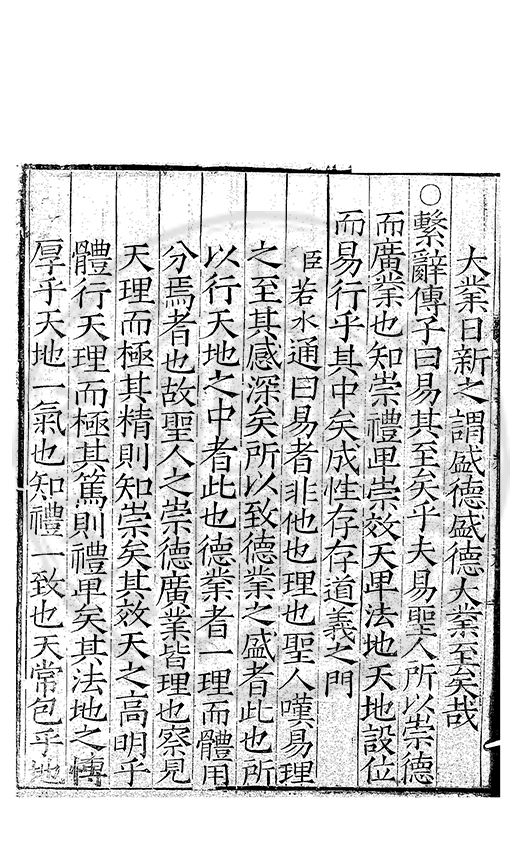 大業日新之謂盛德盛德大業至矣哉
○繫辭傳子曰易其至矣乎夫易聖人所以崇德
而廣業也知崇禮卑崇效天卑法地天地設位
而易行乎其中矣成性存存道義之門
臣若水通曰易者非他也理也聖人嘆易理
之至其感深矣所以致德業之盛者此也所
以行天地之中者此也德業者一理而體用
分焉者也故聖人之崇德廣業皆理也察見
天理而極其精則知崇矣其效天之高明乎
體行天理而極其篤則禮卑矣其法地之博
厚乎天地一氣也知禮一致也天常包乎地